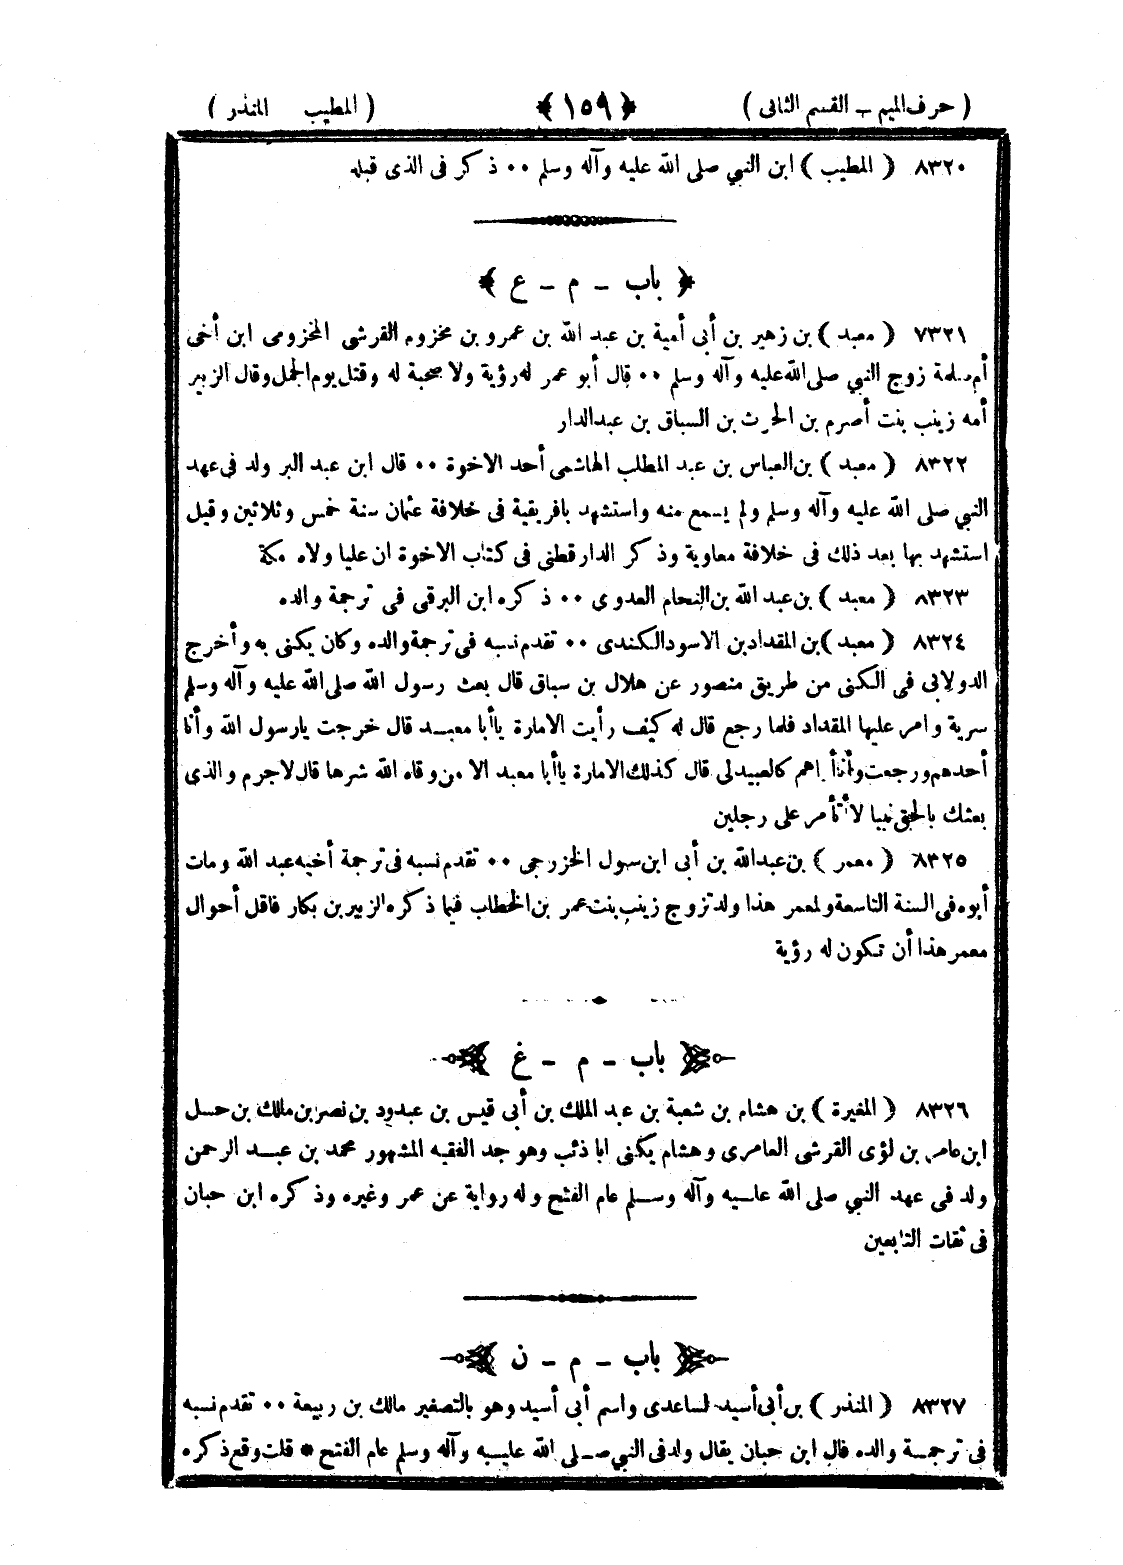 ( حرف الميم - القسم الثانى ) ﴿ ١٥٩ ﴾ ( المطيب المنذر )
٨٣٢٠ ( المطيب ) ابن النبي صلى الله عليه وآله وسلم ٠٠ ذكر فى الذى قبله
﴿ باب - م - ع ﴾
٧٣٢١ ( معبد ) بن زهير بن أبى أمية بن عبد الله بن عمرو بن مخزوم القرشى المخزومى ابن أخى
أم سلمة زوج النبي صلى الله عليه وآله وسلم ٠٠ قال أبو عمر له رؤية ولا صحبة له وقتل يوم الجمل وقال الزبير
أمه زينب بنت أصرم بن الحرث بن السباق بن عبد الدار
٨٣٢٢ ( معبد ) بن العباس بن عبد المطلب الهاشمى أحد الاخوة ٠٠ قال ابن عبد البر ولد فى عهد
النبي صلى الله عليه وآله وسلم ولم يسمع منه واستشهد بافريقية فى خلافة عثمان سنة خمس وثلاثين وقيل
استشهد بها بعد ذلك فى خلافة معاوية وذكر الدارقطنى فى كتاب الاخوة ان عليا ولاه مكة
٨٣٢٣ ( معبد ) بن عبد الله بن النحام العدوى ٠٠ ذكره ابن البرقى فى ترجمة والده
٨٣٢٤ ( معبد ) بن المقداد بن الاسود الكندى ٠٠ تقدم نسبه فى ترجمة والده وكان يكنى به وأخرج
الدولابى فى الكنى من طريق منصور عن هلال بن سباق قال بعث رسول الله صلى الله عليه وآله وسلم
سرية وامر عليها المقداد فلما رجع قال له كيف رأيت الامارة ياأبا معبد قال خرجت يارسول الله وأنا
أحدهم ورجعت وأنا أراهم كالعبيد لى قال كذلك الامارة ياأبا معبد الا من وقاه الله شرها قال لاجرم والذى
بعثك بالحق نبيا لا أتأمر على رجلين
٨٣٢٥ ( معمر ) بن عبد الله بن أبى ابن سول الخزرجى ٠٠ تقدم نسبه فى ترجمة أخيه عبد الله ومات
أبوه فى السنة التاسعة ولمعمر هذا ولد تزوج زينب بنت عمر بن الخطاب فيما ذكره الزبير بن بكار فاقل أحوال
معمر هذا أن تكون له رؤية
باب - م - غ
٨٣٢٦ ( المغيرة ) بن هشام بن شعبة بن عبد الملك بن أبى قيس بن عبدود بن نصر بن مالك بن حسل
ابن عامر بن لؤى القرشى العامرى وهشام يكنى ابا ذئب وهو جد الفقيه المشهور محمد بن عبد الرحمن
ولد فى عهد النبي صلى الله عليه وآله وسلم عام الفتح وله رواية عن عمر وغيره وذكره ابن حبان
فى ثقات التابعين
باب - م - ن
٨٣٢٧ ( المنذر ) بن أبى أسيد الساعدى واسم أبى أسيد وهو بالتصغير مالك بن ربيعة ٠٠ تقدم نسبه
فى ترجمة والده قال ابن حبان يقال ولد فى النبي صلى الله عليه وآله وسلم عام الفتح * قلت وقع ذكره